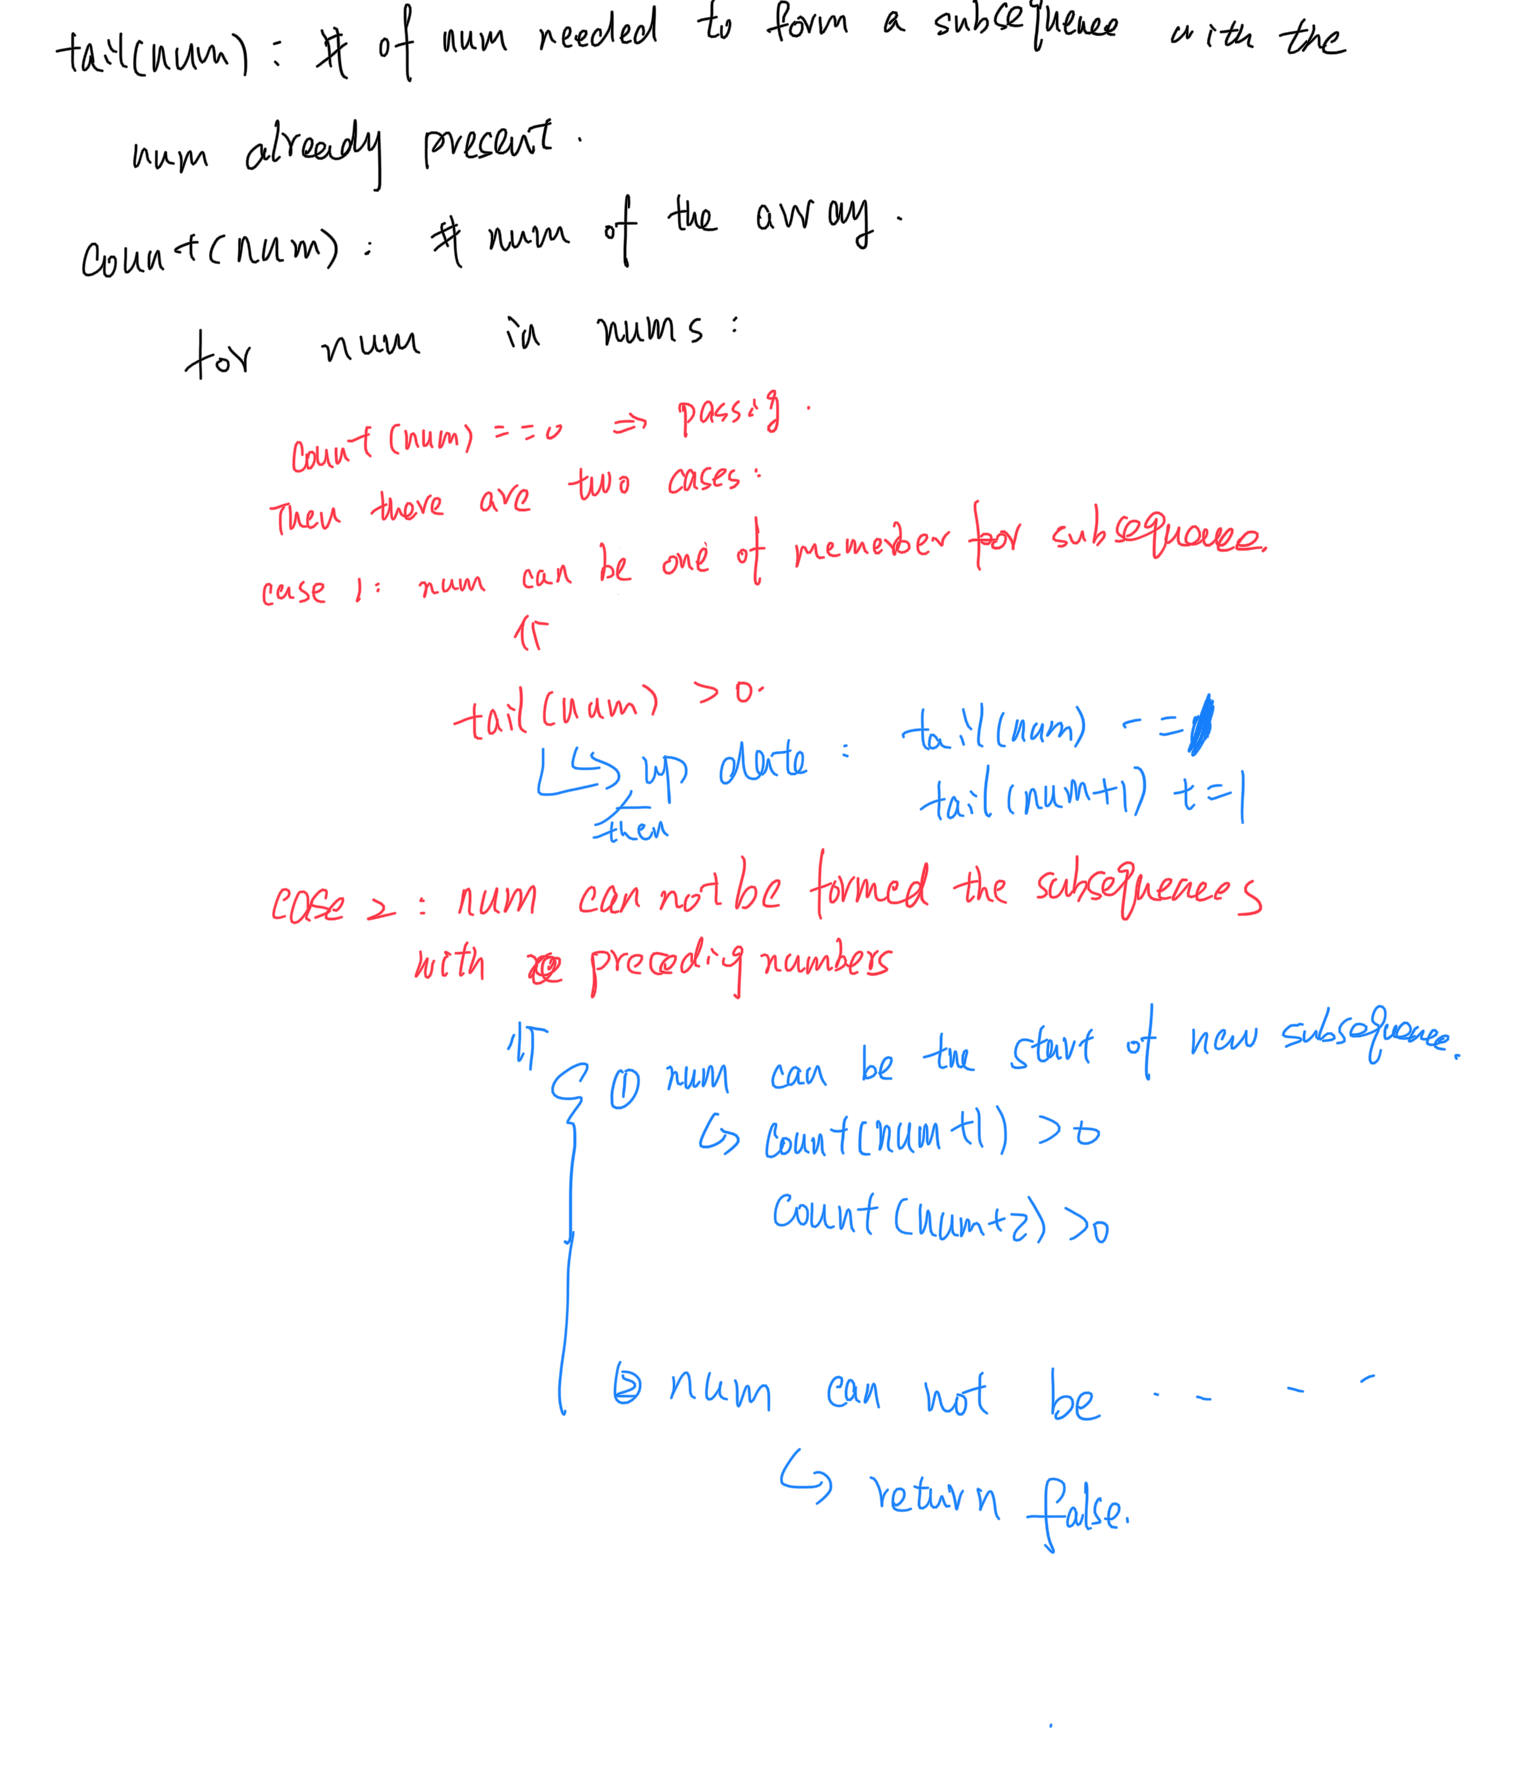 tail(num) : # of num needed to form a subsequence with the
num already present .
Count(num) : # num of the array .
for num in nums :
Count (num) = = 0 ⇒ passig .
Then there are two cases :
case 1 : num can be one of memerber for subsequence.
⇑
tail (num) > 0.
↳ update : tail(num) - = 1
then tail (num+1) += 1
case 2 : num can not be formed the subsequences
with precedig numbers
⇑
① num can be the start of new subsequence.
↳ Count(num+1) > 0
Count (num+2) >0
② num can not be . - - -
↳ return false.